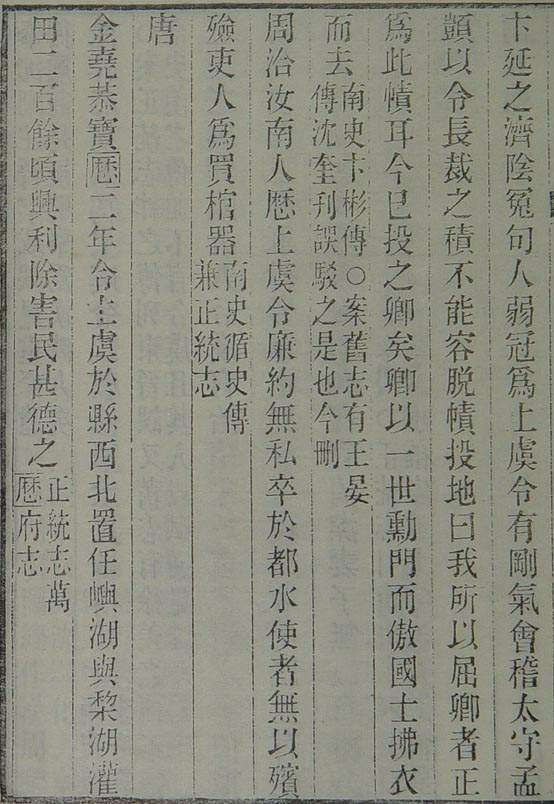 卞延之濟陰冤句人弱冠爲上虞令有剛氣會稽太守孟
顗以令長裁之積不能容脫幘投地曰我所以屈卿者正
爲此幘耳今已投之卿矣卿以一世勳門而傲國士拂衣
而去南史卞彬傳○案舊志有王晏
傳沈奎刊誤駁之是也今刪
周洽汝南人歷上虞令廉約無私卒於都水使者無以殯
殮吏人爲買棺器南史循吏傳
兼正統志
唐
金堯恭寶曆二年令上虞於縣西北置任嶼湖與棃湖灌
田二百餘頃興利除害民甚德之正統志萬
曆府志